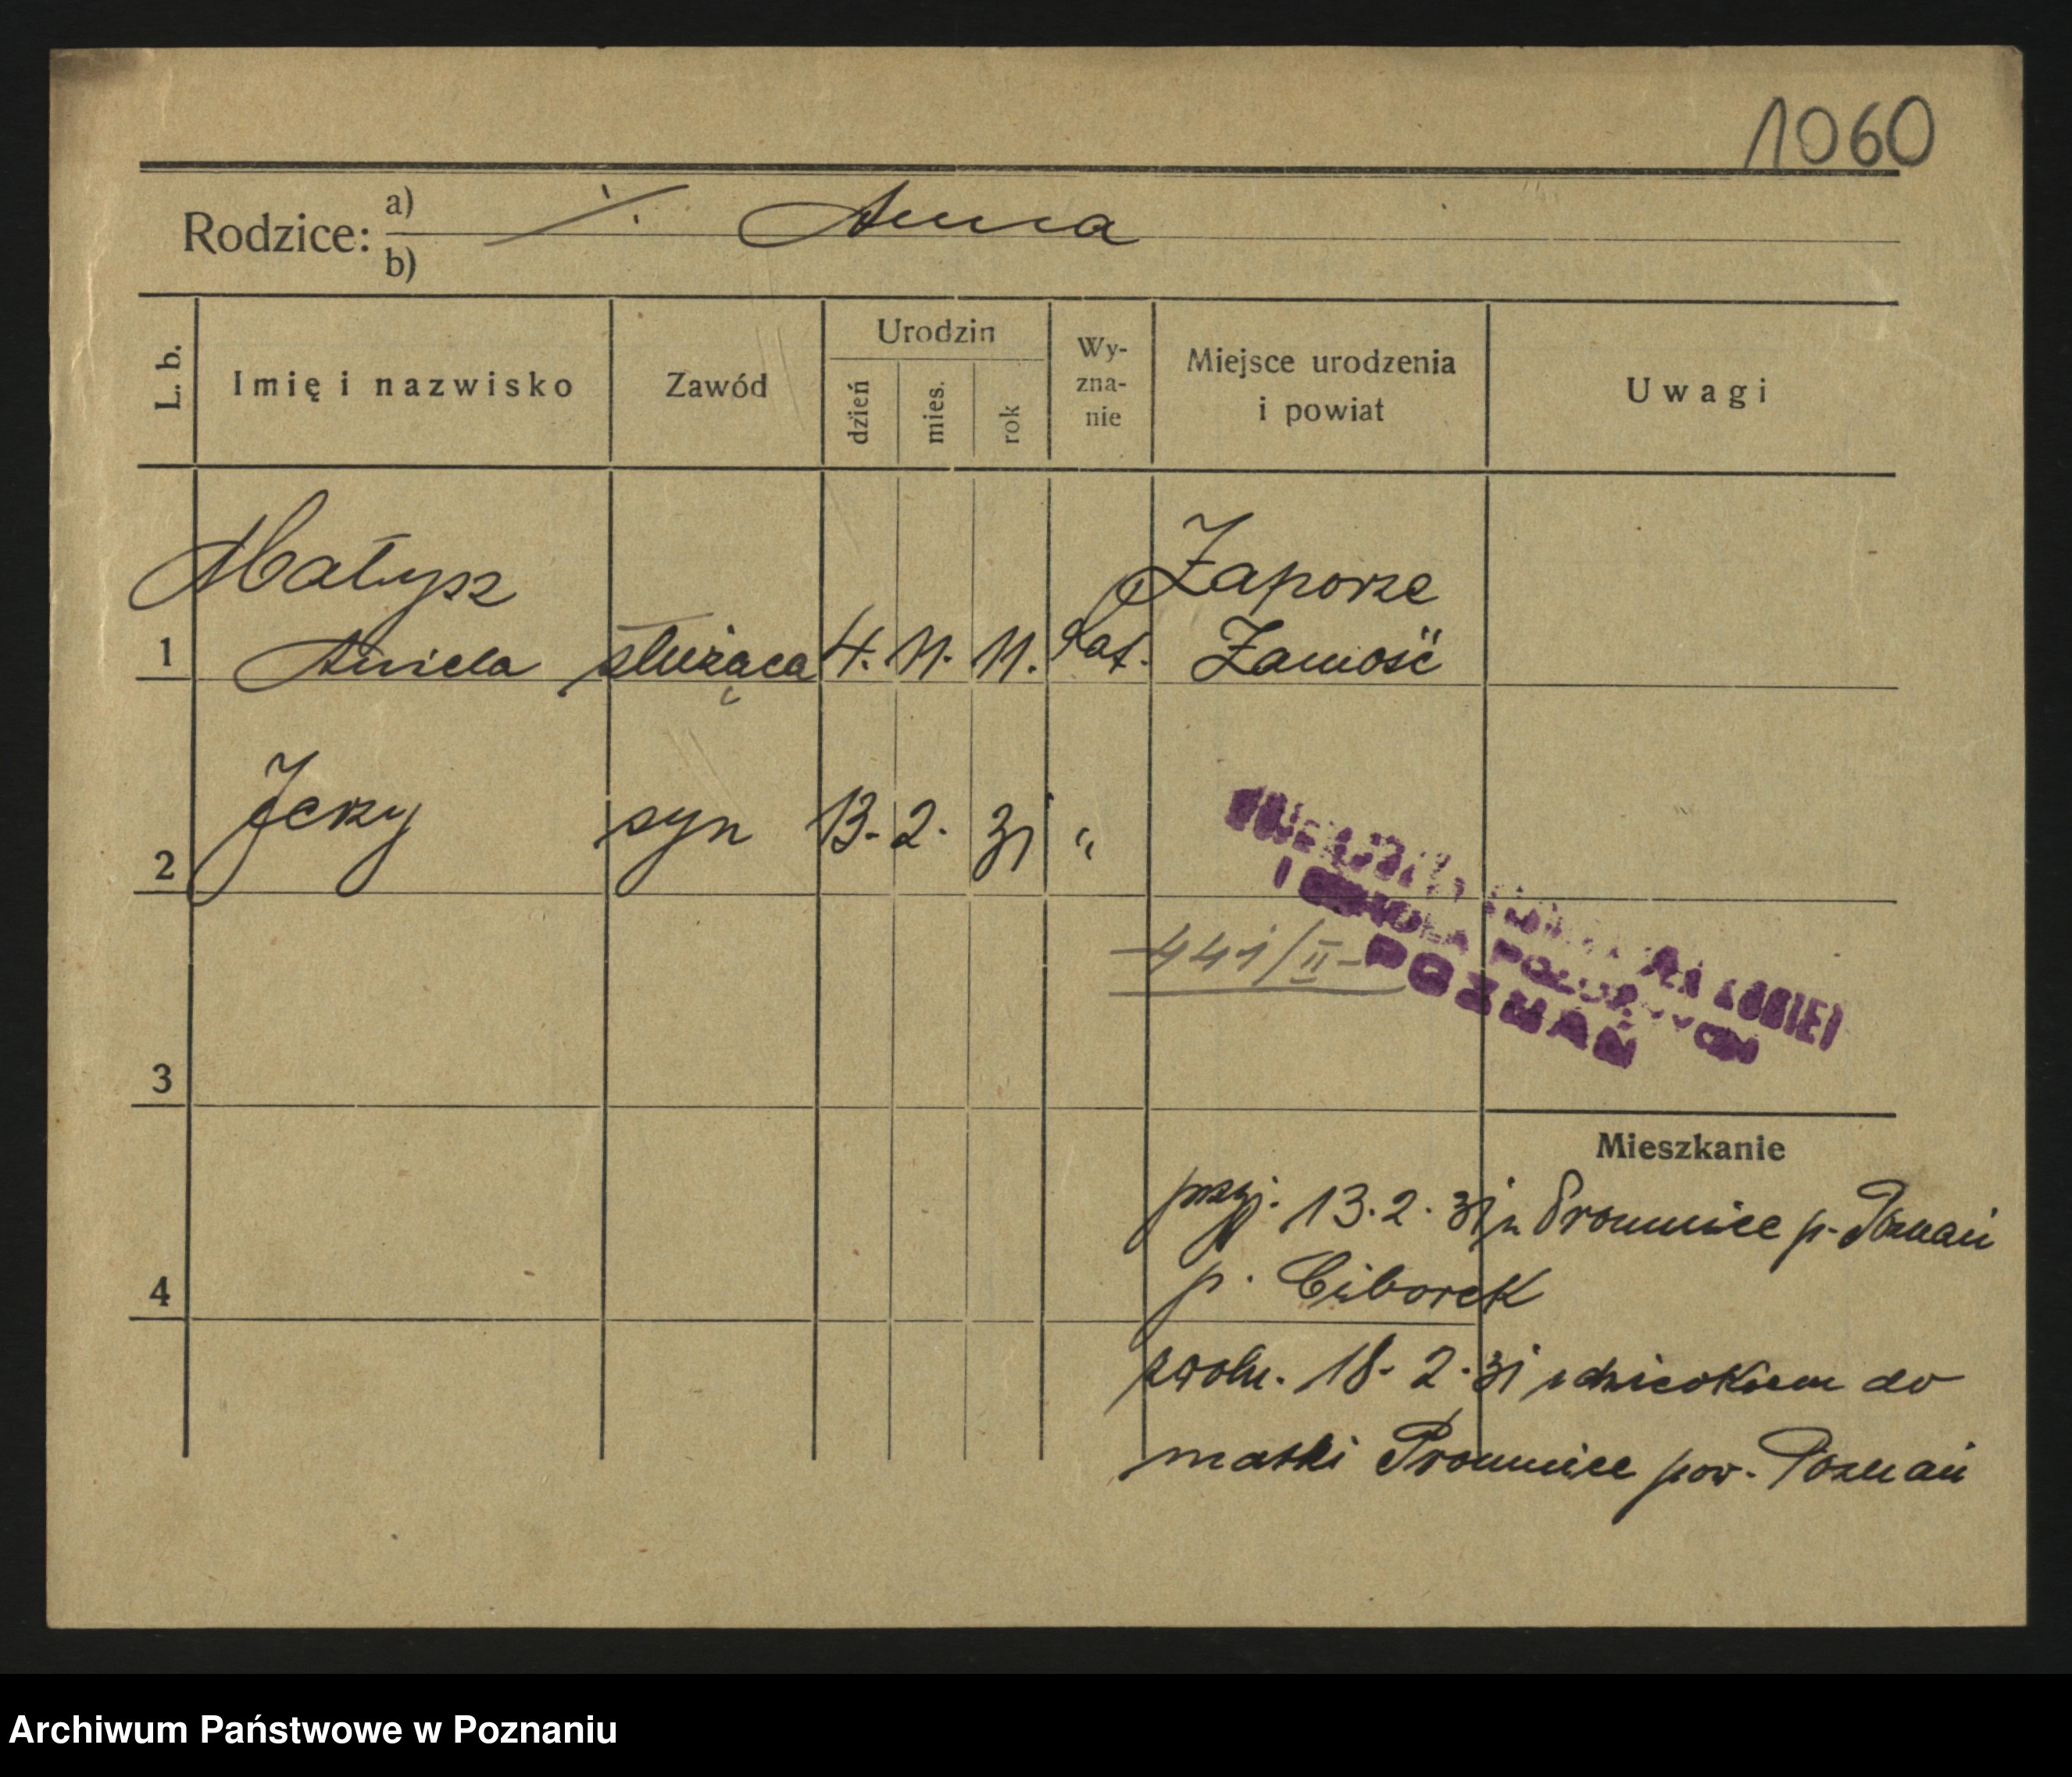 1060
Rodzice: a) ·/. Anna
b)
L. b. Imię i nazwisko Zawód Urodzin dzień mies. rok Wyznanie Miejsce urodzenia i powiat Uwagi
Małysz Zaporze
1 Aniela służąca 4. 11. 11. Kat. Zamość
2 Jerzy syn 13. 2. 31 "
441/II
POZNAŃ
3
Mieszkanie
przyj. 13.2.31 z Promnice p. Poznań
4 p. Ciborek
zwoln. 18. 2. 31 z dzieckiem do
matki Promnice pow. Poznań
Archiwum Państwowe w Poznaniu